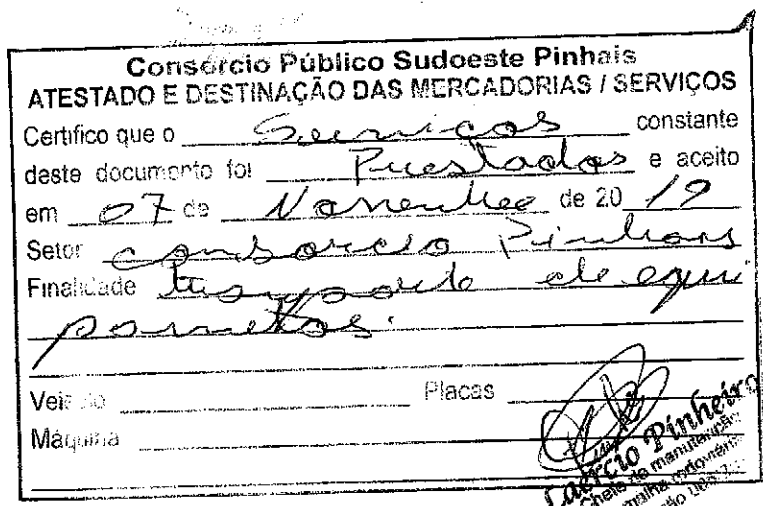 Consórcio Público Sudoeste Pinhais
ATESTADO E DESTINAÇÃO DAS MERCADORIAS / SERVIÇOS
Certifico que o Serviços constante
deste documento foi Prestados e aceito
em 07 de Novembro de 20 19
Setor consorcio Pinhais
Finalidade transporte de equi
pamentos.
Veículo Placas
Máquina
Laércio Pinheiro
Chefe de manutenção
malha rodoviária